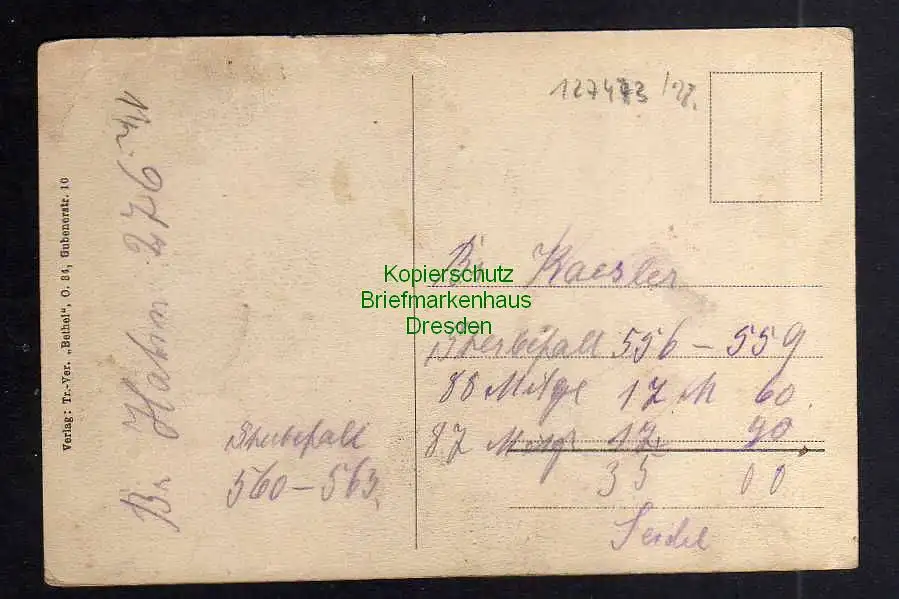 Verlag: Tr.-Ver. „Bethel“, O. 34, Gubenerstr. 10
Br. Hahn 276
Sterbefall
560–563
127473/28.
Br. Kaesler
Kopierschutz
Briefmarkenhaus
Dresden
Sterbefall 556–559
88 Mitgl 17 M 60
87 Mitgl 17 40
35 00
Seidel